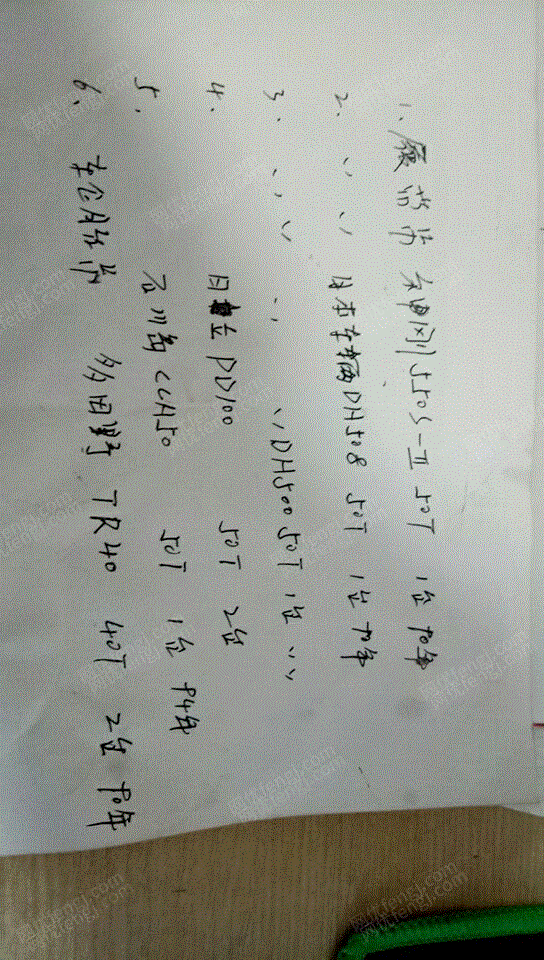 1. 履带吊 神钢550S-Ⅱ 50T 1台 90年
2. 〃 〃 日本车辆DH508 50T 1台 90年
3. 〃 〃 〃 〃 DH500 50T 1台 〃
4. 日立 PD100 50T 2台
5. 石川岛 CCH50 50T 1台 94年
6. 吊 多田野 TR40 40T 2台 90年